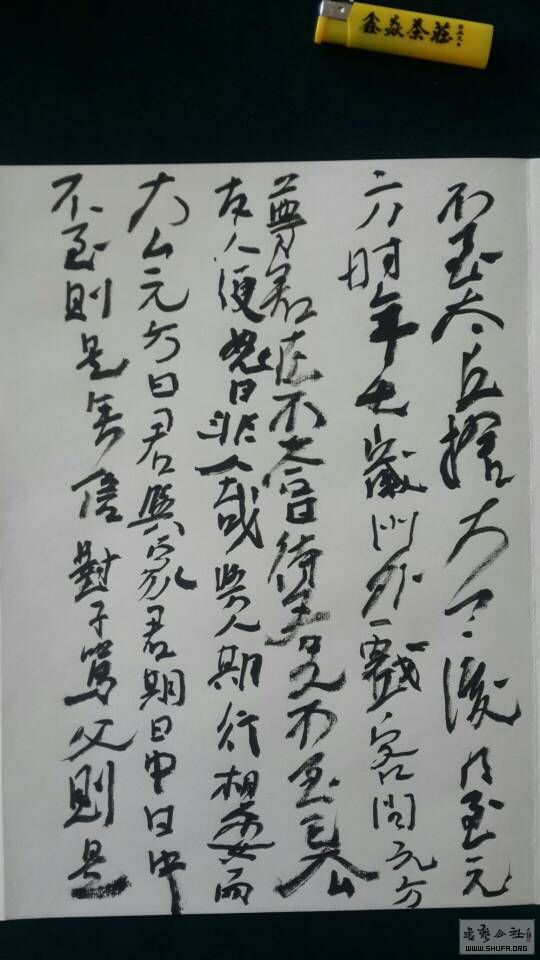 鑫焱茶莊
不至太丘捨去去後乃至元
方時年七歲門外戲客問元方
尊君在不答曰待君久不至已去
友人便怒曰非人哉與人期行相委而
去元方曰君與家君期日中日中
不至則是無信對子罵父則是
WWW.SHUFA.ORG